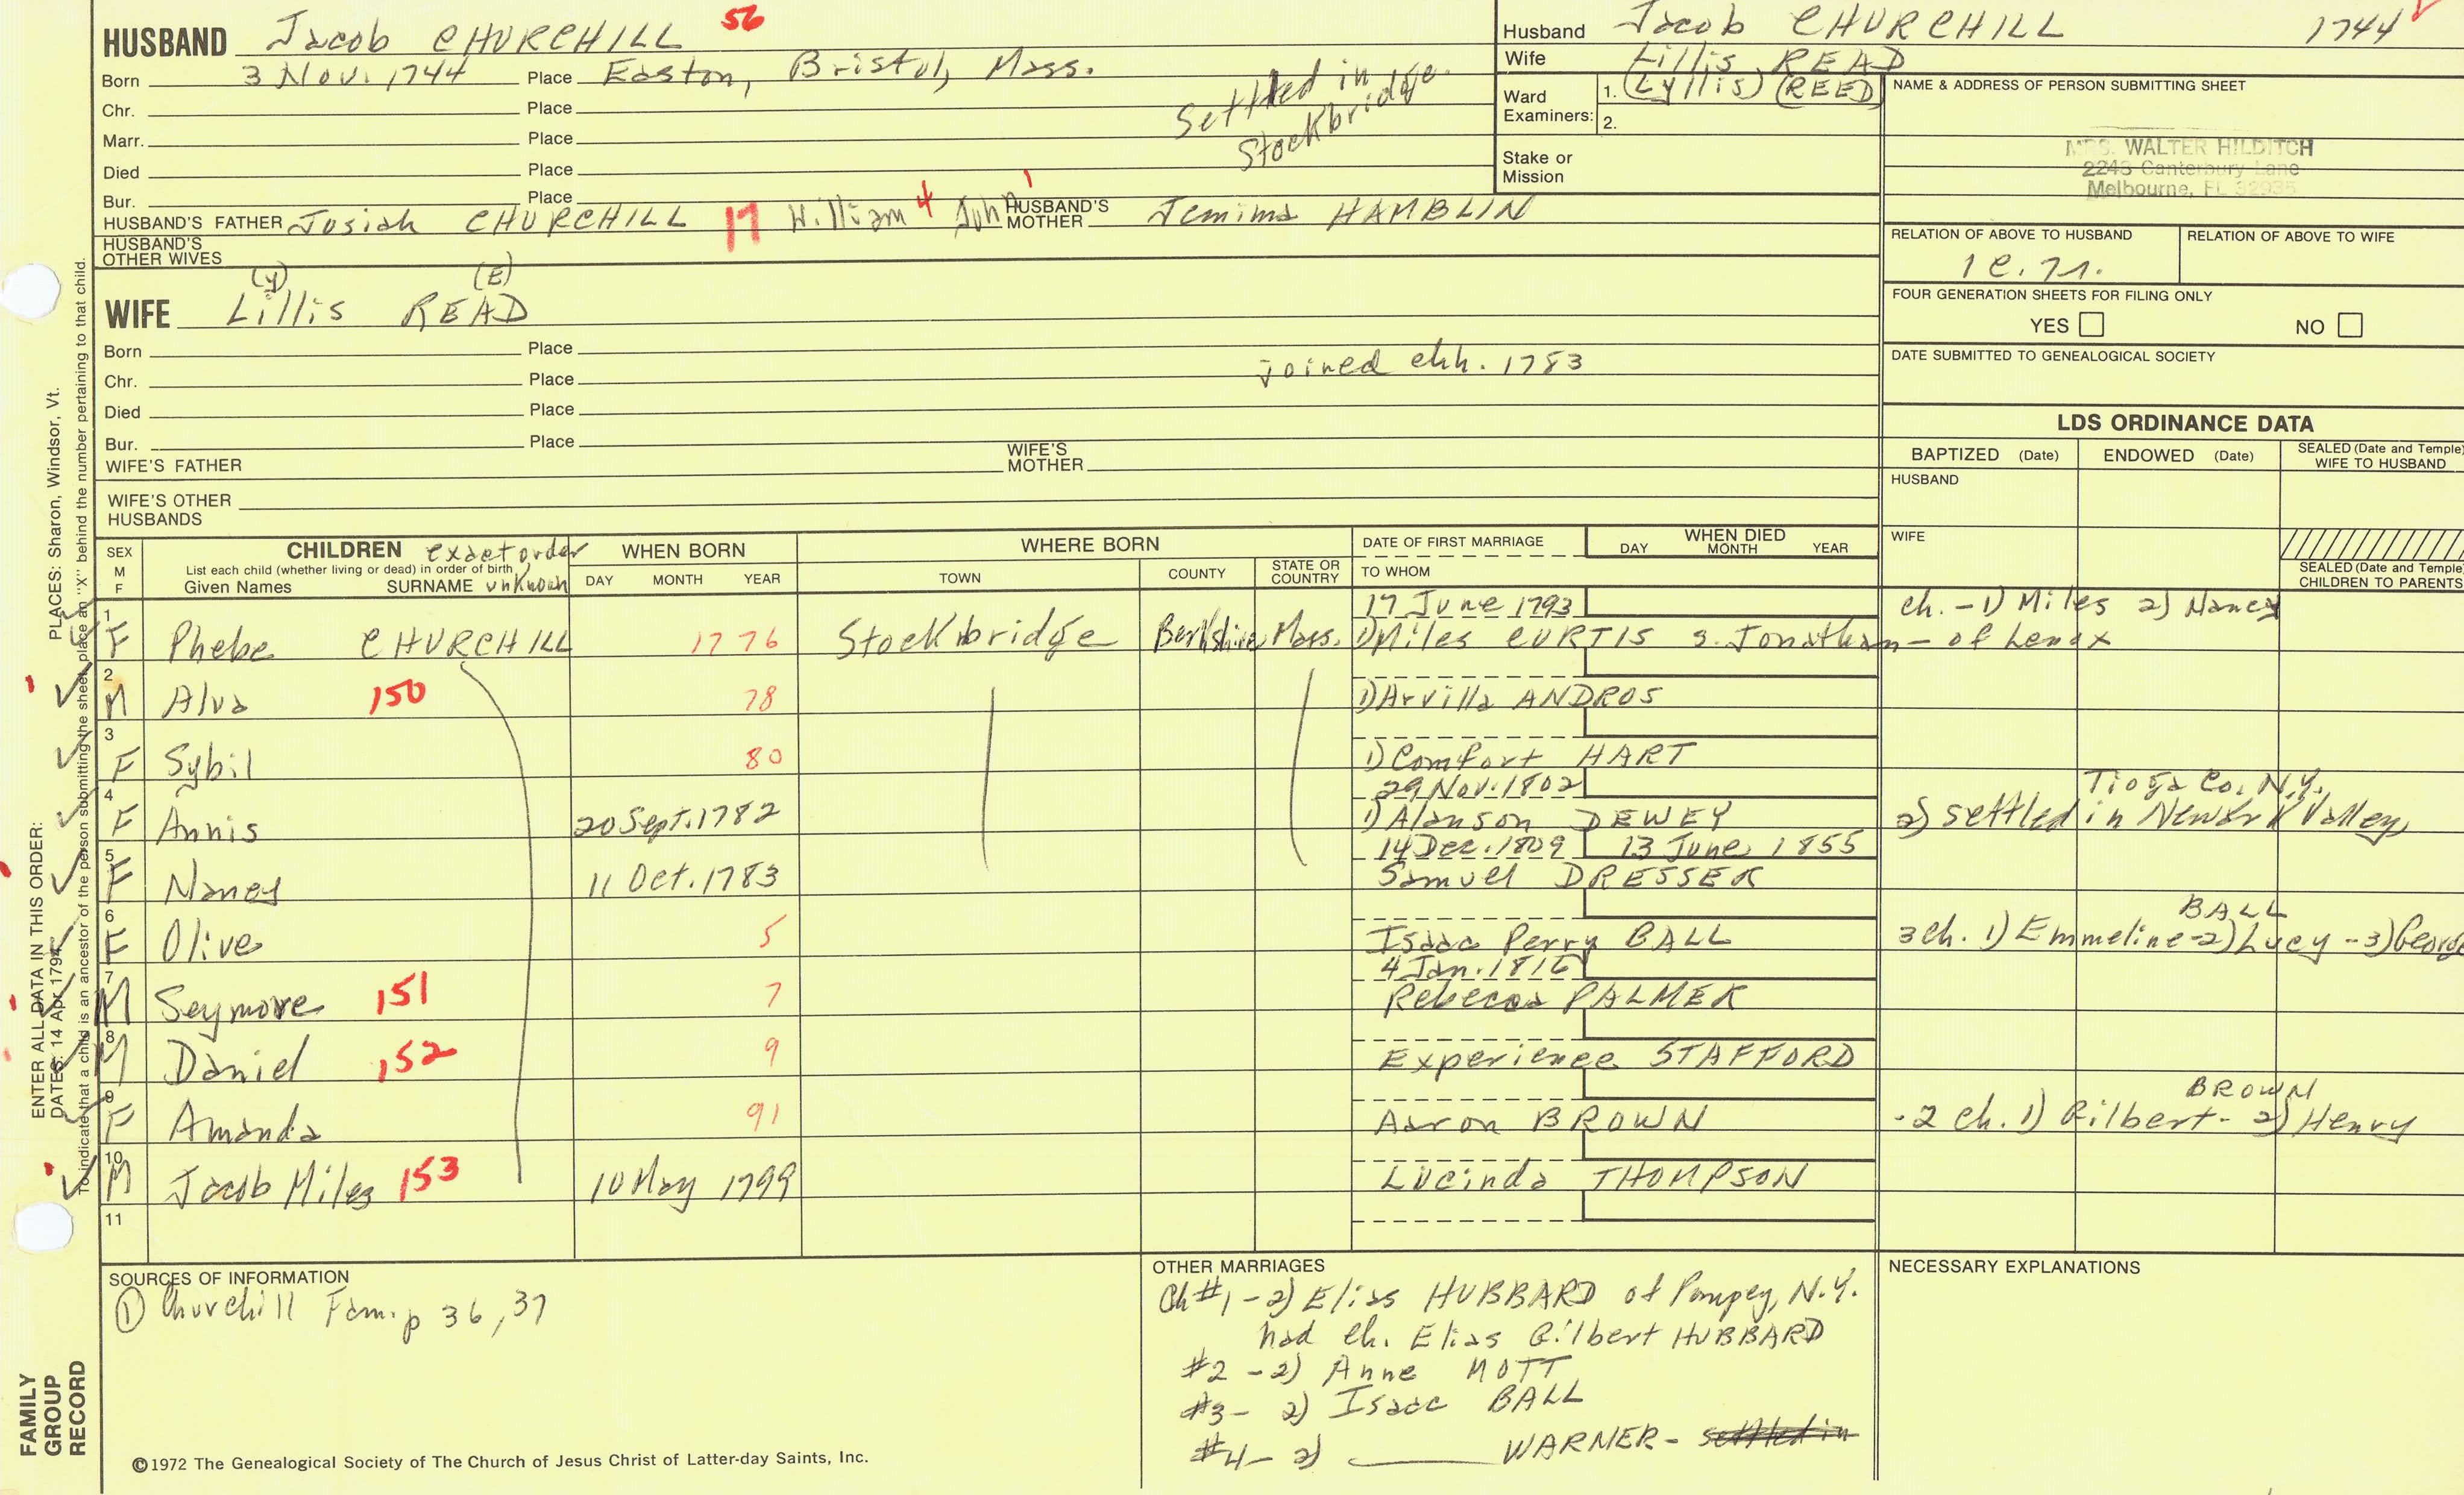 HUSBAND Jacob CHURCHILL 56
Born 3 Nov. 1744 Place Easton, Bristol, Mass.
Chr. Place
Marr. Place
Died Place
Bur. Place
Settled in
Stockbridge.
HUSBAND'S FATHER Josiah CHURCHILL 17 William 4 John 1 HUSBAND'S MOTHER Jemima HAMBLIN
HUSBAND'S
OTHER WIVES
Husband Jacob CHURCHILL 1744
Wife Lillis READ
Ward
Examiners:
1. (Lyllis) (REED)
2.
Stake or
Mission
NAME & ADDRESS OF PERSON SUBMITTING SHEET
MRS. WALTER HILDITCH
2248 Canterbury Lane
Melbourne, FL 32935
RELATION OF ABOVE TO HUSBAND RELATION OF ABOVE TO WIFE
FOUR GENERATION SHEETS FOR FILING ONLY
YES NO
DATE SUBMITTED TO GENEALOGICAL SOCIETY
(y) (E)
WIFE Lillis READ
Born Place
joined chh. 1783
Chr. Place
Died Place
Bur. Place
WIFE'S FATHER WIFE'S MOTHER
WIFE'S OTHER
HUSBANDS
LDS ORDINANCE DATA
BAPTIZED (Date) ENDOWED (Date) SEALED (Date and Temple)
WIFE TO HUSBAND
HUSBAND
WIFE
SEALED (Date and Temple)
CHILDREN TO PARENTS
SEX
M
F
CHILDREN exact order
List each child (whether living or dead) in order of birth
Given Names SURNAME unknown
WHEN BORN
DAY MONTH YEAR
WHERE BORN
TOWN COUNTY STATE OR COUNTRY
DATE OF FIRST MARRIAGE
TO WHOM
WHEN DIED
DAY MONTH YEAR
17 June 1793 ch. - 1) Miles 2) Nancy
1 F Phebe CHURCHILL 1776 Stockbridge Berkshire Mass. 1) Miles CURTIS s. Jonathan - of Lenox
2 M Alva 150 78 1) Arvilla ANDROS
3 F Sybil 80 1) Comfort HART
29 Nov. 1802 Tioga Co., N.Y.
4 F Annis 20 Sept. 1782 1) Alanson DEWEY 2) settled in Newark Valley,
14 Dec. 1809 13 June 1855
5 F Nancy 11 Oct. 1783 Samuel DRESSER
BALL
6 F Olive 5 Isaac Perry BALL 3 ch. 1) Emmeline - 2) Lucy - 3) George
4 Jan. 1816
7 M Seymore 151 7 Rebecca PALMER
8 M Daniel 152 9 Experience STAFFORD
BROWN
9 F Amanda 91 Aaron BROWN - 2 ch. 1) Gilbert - 2) Henry
10 M Jacob Miles 153 10 May 1799 Lucinda THOMPSON
11
SOURCES OF INFORMATION
① Churchill Fam. p 36, 37
OTHER MARRIAGES
Ch #1 - 2) Elias HUBBARD of Pompey, N.Y.
had ch. Elias Gilbert HUBBARD
#2 - 2) Anne MOTT
#3 - 2) Isaac BALL
#4 - 2) WARNER - settled in
NECESSARY EXPLANATIONS
©1972 The Genealogical Society of The Church of Jesus Christ of Latter-day Saints, Inc.
FAMILY
GROUP
RECORD
ENTER ALL DATA IN THIS ORDER:
DATES: 14 Apr 1794
PLACES: Sharon, Windsor, Vt.
To indicate that a child is an ancestor of the person submitting the sheet, place an "X" behind the number pertaining to that child.